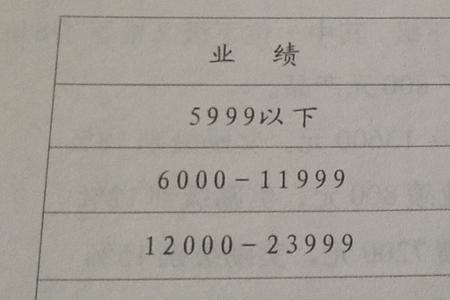 业 绩
5999以下
6000-11999
12000-23999